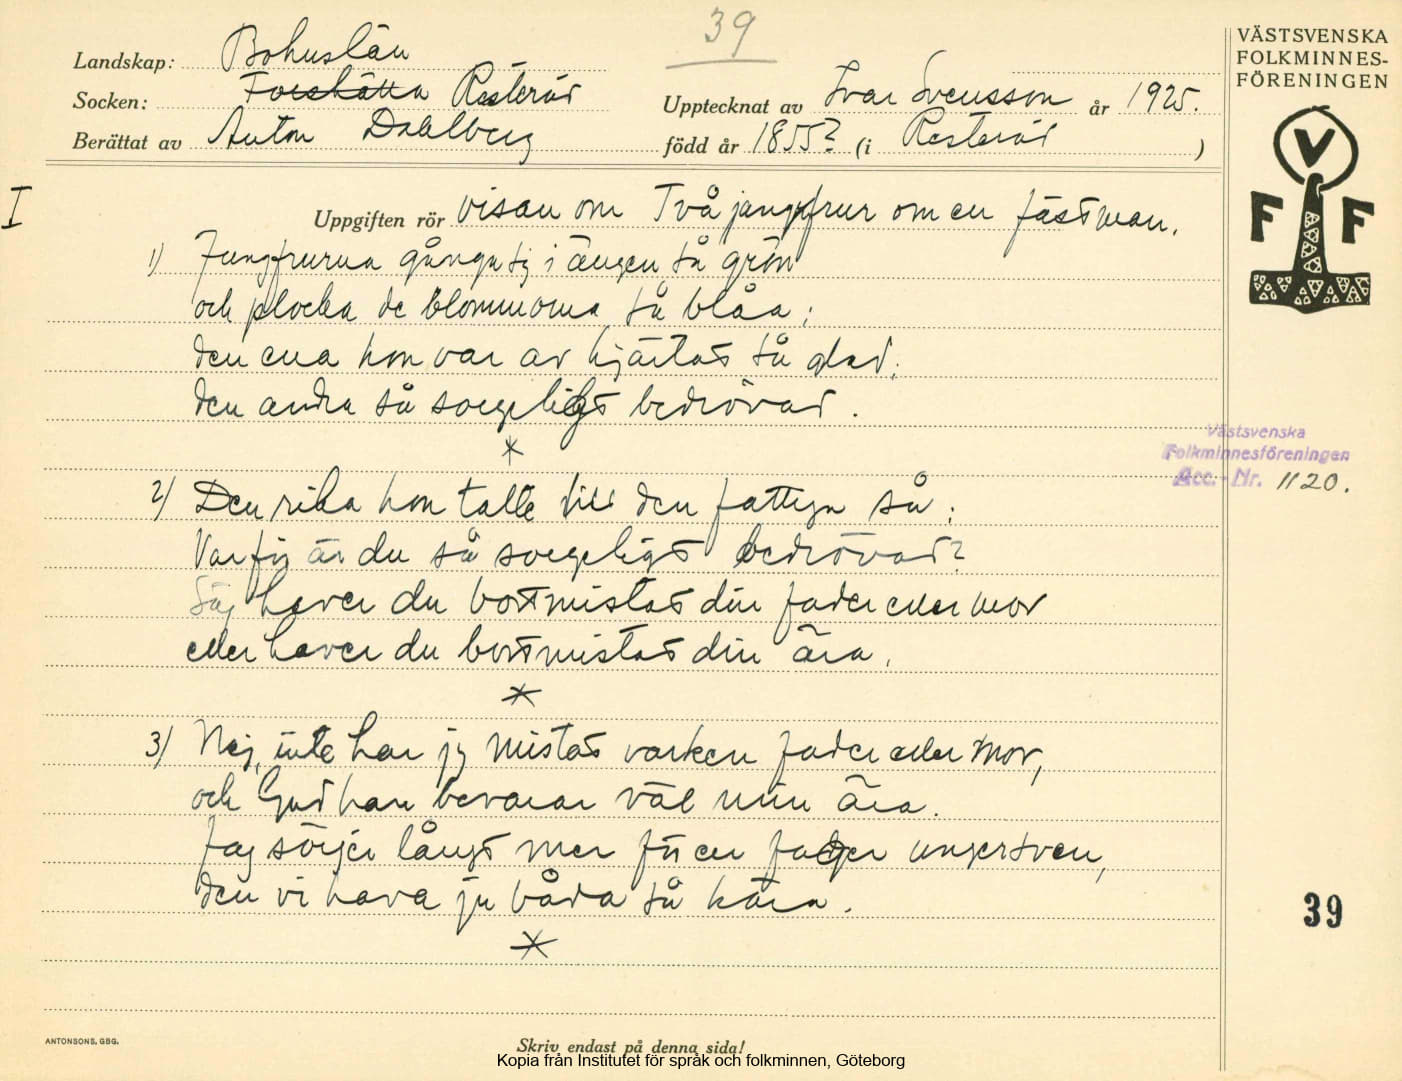 39
VÄSTSVENSKA
FOLKMINNES-
FÖRENINGEN
Landskap: Bohuslän
Socken: Forshälla Resteröd
Upptecknat av Ivar Svensson år 1925.
Berättat av Anton Dahlberg född år 1855? (i Resteröd)
V
F F
I
Uppgiften rör visan om Två jungfrur om en fästman.
1) Jungfrurna gånga sig i ängen så grön
och plocka de blommorna så blåa;
den ena hon var av hjärtat så glad,
den andra så sorgeligt bedrövad.
*
Västsvenska
Folkminnesföreningen
Acc.-Nr. 1120.
2) Den rika hon talte till den fattiga så:
Varför är du så sorgeligt bedrövad?
Säg haver du bortmistat din fader eller mor
eller haver du bortmistat din ära.
*
3) Nej, inte har jag mistat varken fader eller mor,
och Gud han bevarar väl min ära.
Jag sörjer långt mer för en fager ungersven,
den vi hava ju båda så kära.
39
*
ANTONSONS, GBG.
Skriv endast på denna sida!
Kopia från Institutet för språk och folkminnen, Göteborg